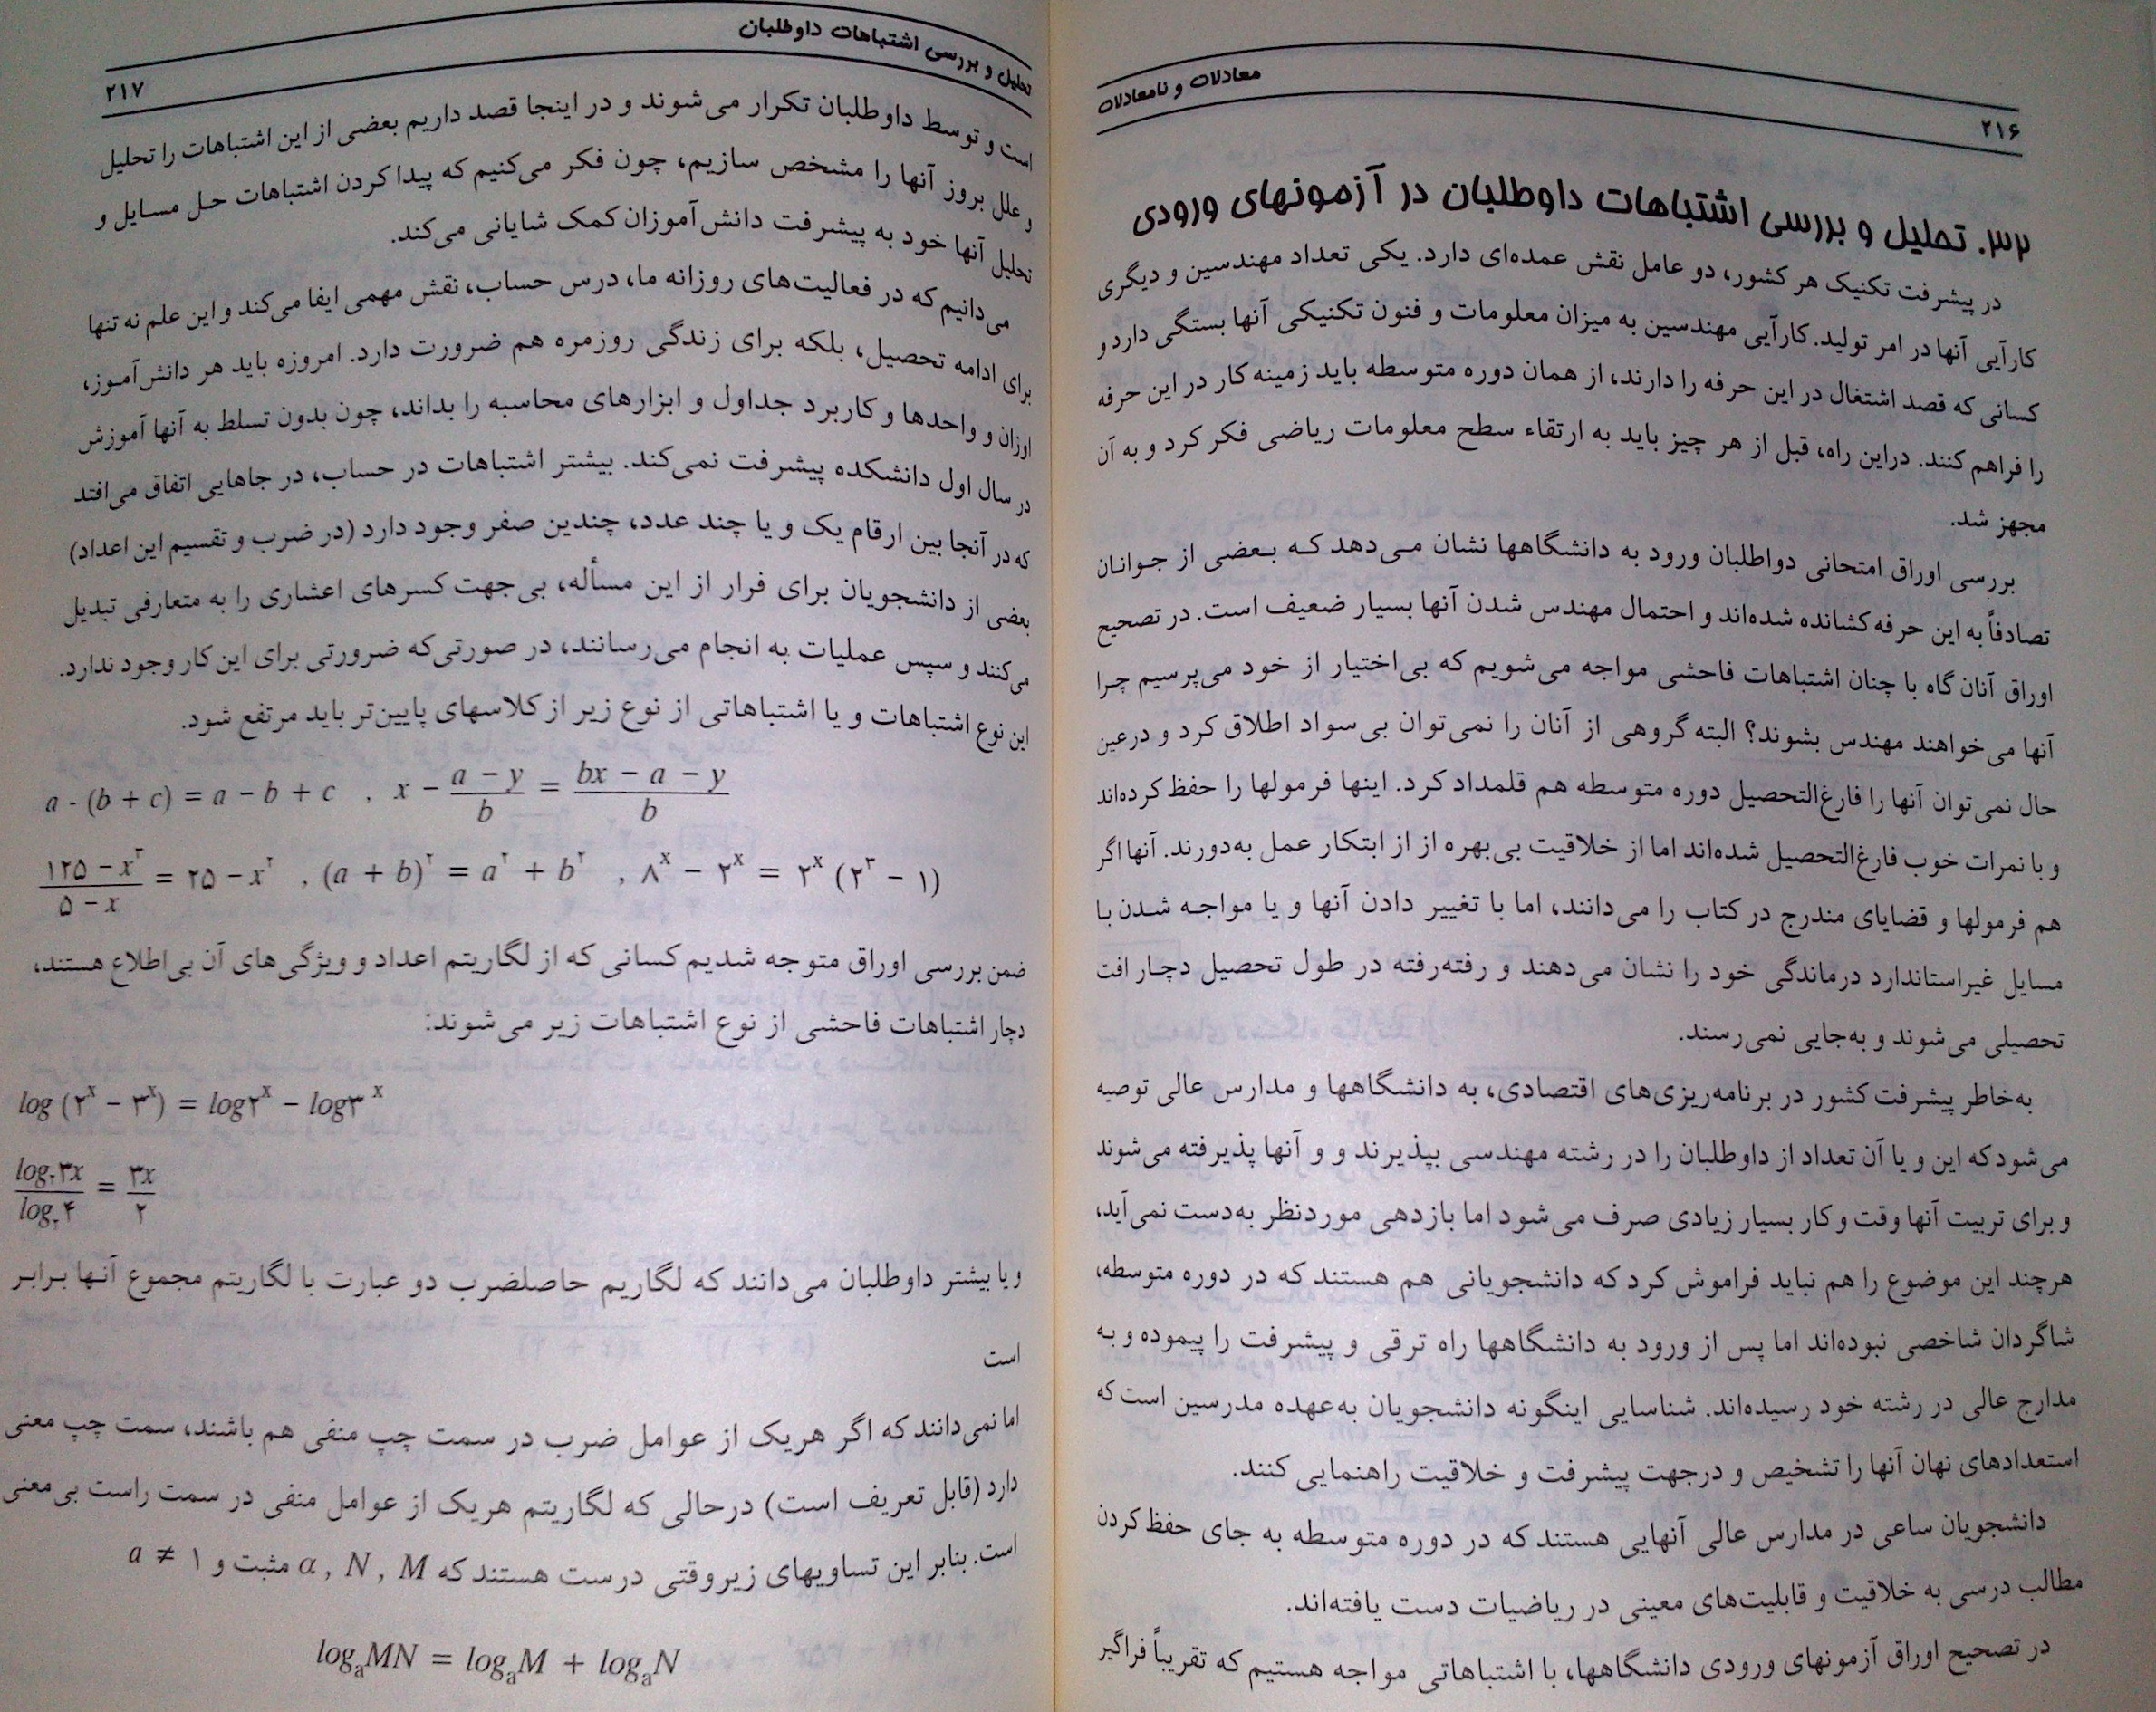 معادلات و نامعادلات
۲۱۶
۳۲. تحلیل و بررسی اشتباهات داوطلبان در آزمونهای ورودی
در پیشرفت تکنیک هر کشور، دو عامل نقش عمده‌ای دارد. یکی تعداد مهندسین و دیگری
کارآیی آنها در امر تولید. کارآیی مهندسین به میزان معلومات و فنون تکنیکی آنها بستگی دارد و
کسانی که قصد اشتغال در این حرفه را دارند، از همان دوره متوسطه باید زمینه کار در این حرفه
را فراهم کنند. دراین راه، قبل از هر چیز باید به ارتقاء سطح معلومات ریاضی فکر کرد و به آن
مجهز شد.
بررسی اوراق امتحانی دواطلبان ورود به دانشگاهها نشان می‌دهد که بعضی از جوانان
تصادفاً به این حرفه کشانده شده‌اند و احتمال مهندس شدن آنها بسیار ضعیف است. در تصحیح
اوراق آنان گاه با چنان اشتباهات فاحشی مواجه می‌شویم که بی‌اختیار از خود می‌پرسیم چرا
آنها می‌خواهند مهندس بشوند؟ البته گروهی از آنان را نمی‌توان بی‌سواد اطلاق کرد و درعین
حال نمی‌توان آنها را فارغ‌التحصیل دوره متوسطه هم قلمداد کرد. اینها فرمولها را حفظ کرده‌اند
و با نمرات خوب فارغ‌التحصیل شده‌اند اما از خلاقیت بی‌بهره از از ابتکار عمل به‌دورند. آنها اگر
هم فرمولها و قضایای مندرج در کتاب را می‌دانند، اما با تغییر دادن آنها و یا مواجه شدن با
مسایل غیراستاندارد درماندگی خود را نشان می‌دهند و رفته‌رفته در طول تحصیل دچار افت
تحصیلی می‌شوند و به‌جایی نمی‌رسند.
به‌خاطر پیشرفت کشور در برنامه‌ریزی‌های اقتصادی، به دانشگاهها و مدارس عالی توصیه
می‌شود که این و یا آن تعداد از داوطلبان را در رشته مهندسی بپذیرند و و آنها پذیرفته می‌شوند
و برای تربیت آنها وقت و کار بسیار زیادی صرف می‌شود اما بازدهی موردنظر به‌دست نمی‌آید،
هرچند این موضوع را هم نباید فراموش کرد که دانشجویانی هم هستند که در دوره متوسطه،
شاگردان شاخصی نبوده‌اند اما پس از ورود به دانشگاهها راه ترقی و پیشرفت را پیموده و به
مدارج عالی در رشته خود رسیده‌اند. شناسایی اینگونه دانشجویان به‌عهده مدرسین است که
استعدادهای نهان آنها را تشخیص و درجهت پیشرفت و خلاقیت راهنمایی کنند.
دانشجویان ساعی در مدارس عالی آنهایی هستند که در دوره متوسطه به جای حفظ کردن
مطالب درسی به خلاقیت و قابلیت‌های معینی در ریاضیات دست یافته‌اند.
در تصحیح اوراق آزمونهای ورودی دانشگاهها، با اشتباهاتی مواجه هستیم که تقریباً فراگیر
تحلیل و بررسی اشتباهات داوطلبان
۲۱۷
است و توسط داوطلبان تکرار می‌شوند و در اینجا قصد داریم بعضی از این اشتباهات را تحلیل
و علل بروز آنها را مشخص سازیم، چون فکر می‌کنیم که پیدا کردن اشتباهات حل مسایل و
تحلیل آنها خود به پیشرفت دانش‌آموزان کمک شایانی می‌کند.
می‌دانیم که در فعالیت‌های روزانه ما، درس حساب، نقش مهمی ایفا می‌کند و این علم نه تنها
برای ادامه تحصیل، بلکه برای زندگی روزمره هم ضرورت دارد. امروزه باید هر دانش‌آموز،
اوزان و واحدها و کاربرد جداول و ابزارهای محاسبه را بداند، چون بدون تسلط به آنها آموزش
در سال اول دانشکده پیشرفت نمی‌کند. بیشتر اشتباهات در حساب، در جاهایی اتفاق می‌افتد
که در آنجا بین ارقام یک و یا چند عدد، چندین صفر وجود دارد (در ضرب و تقسیم این اعداد)
بعضی از دانشجویان برای فرار از این مسأله، بی‌جهت کسرهای اعشاری را به متعارفی تبدیل
می‌کنند و سپس عملیات به انجام می‌رسانند، در صورتی‌که ضرورتی برای این کار وجود ندارد.
این نوع اشتباهات و یا اشتباهاتی از نوع زیر از کلاسهای پایین‌تر باید مرتفع شود.
a - (b + c) = a − b + c , x − (a − y)/b = (bx − a − y)/b
(۱۲۵ − x^۳)/(۵ − x) = ۲۵ − x^۲ , (a + b)^۲ = a^۲ + b^۲ , ۸^x − ۲^x = ۲^x (۲^۳ − ۱)
ضمن بررسی اوراق متوجه شدیم کسانی که از لگاریتم اعداد و ویژگی‌های آن بی‌اطلاع هستند،
دچار اشتباهات فاحشی از نوع اشتباهات زیر می‌شوند:
log (۲^x − ۳^x) = log۲^x − log۳^x
log_۲ ۳x / log_۲ ۴ = ۳x/۲
و یا بیشتر داوطلبان می‌دانند که لگاریم حاصلضرب دو عبارت با لگاریتم مجموع آنها برابر
است
اما نمی‌دانند که اگر هریک از عوامل ضرب در سمت چپ منفی هم باشند، سمت چپ معنی
دارد (قابل تعریف است) درحالی که لگاریتم هریک از عوامل منفی در سمت راست بی‌معنی
است. بنابر این تساویهای زیروقتی درست هستند که α , N , M مثبت و a ≠ ۱
log_a MN = log_a M + log_a N